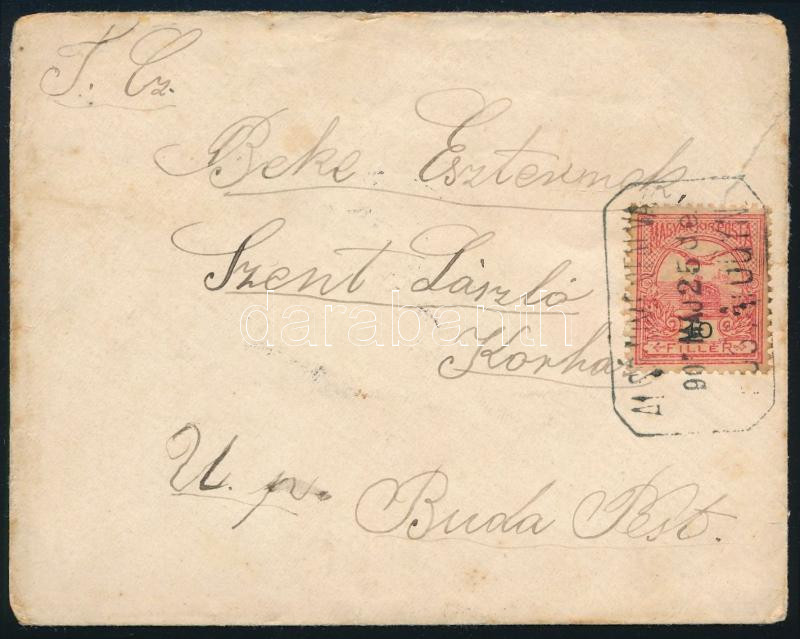 T. Cz.
Beke Eszternek
Szent László
Korház
U. p. Buda Pest.
MAGYAR KIR. POSTA
10
FILLÉR
MÁJ 25
darabanth